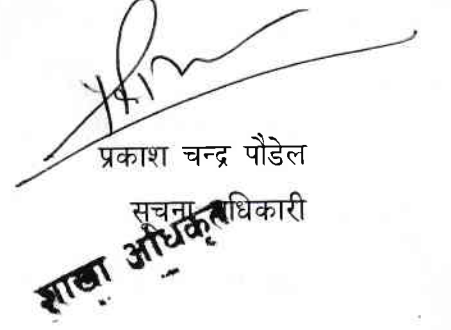 प्रकाश चन्द्र पौडेल
सूचना अधिकारी
शाखा अधिकृत